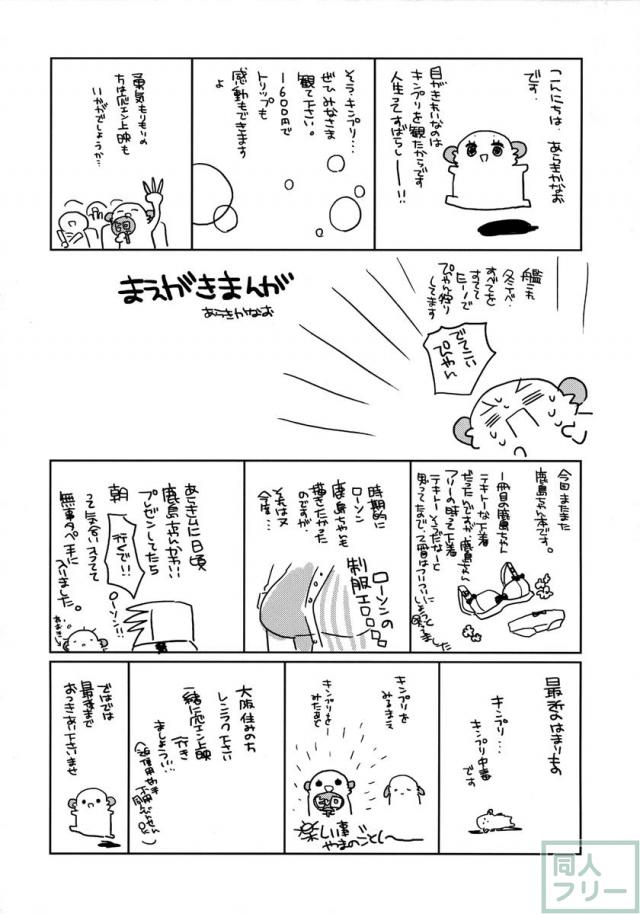 こんにちは、あらきかなお
です。
目がきれいなのは
キンプリを観たからです
人生ってすばらしーー!!
そう・キンプリ…
ぜひみなさま
観て下さい。
1600円で
トリップも
感動もできます
よ
勇気もりもりの
方は応エン上映も
いかがでしょうか…
まえがきまんが
あらきかなお
艦これ
冬イベ・
すべてを
すてて
E-1ノで
ぴゃん狩り
してます
でてこい
ぴゃん
今回またまた
鹿島ちゃん本です。
一冊目の鹿島ちゃん
テキトーな下着
だったんですが鹿島ちゃん
フリーの時って下着
テキトーそうだなーと
思ってなので、
時期的に
ローソン
鹿島ちゃんも
描きたかった
のですが
それは又
今度…
ローソンの
制服エロ
あらきムに日頃
鹿島ちゃんかわいい
プレゼンしてたら
朝
行くで!!
ローソン!!
って気合い入ってて
無事タペ手に
入りました。
最近のはまりもの
キンプリ…
キンプリ中毒
です
キンプリを
みるまえ
キンプリを
みたあと
楽しい事
やまのごとしー
大阪住みの方
レンラク下さい
一緒に応エン上映
行き
ましょう…!!
ではでは
最後まで
おつきあい下さいませ
同人
フリー